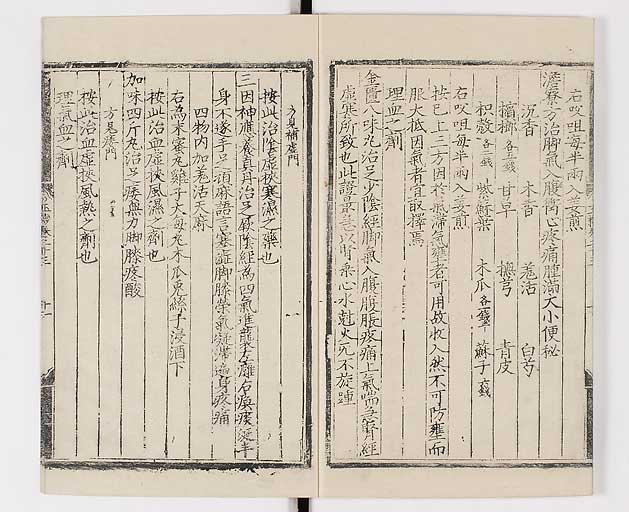 右㕮咀每半兩入姜煎
澹寮方治脚氣入腹衝心疼痛腫滿大小便秘
沉香 木香 羗活 白芍
檳榔各五錢 甘草 撫芎 青皮
枳殼各錢 紫蘇葉 木瓜各錢 蘇子六錢
右㕮咀每半兩入姜煎
按已上三方因於氣滯氣壅者可用故收入然不可防壅而
服大抵因氣者宜取擇焉
理血之劑
金匱八味丸治足少陰經脚氣入腹腹脹疼痛上氣喘急腎經
虛寒所致也此證最急以腎乘心水剋火死不旋踵
方見補虛門
按此治陰虛挾寒濕之藥也
三因神應養真丹治足厥陰經為四氣進襲左癱右瘓痰涎半
身不遂手足頑麻語言蹇澁脚膝榮氣凝滯遍身疼痛
四物內加羗活天麻
右為末蜜丸雞子大每丸木瓜兔絲子浸酒下
按此治血虛挾風濕之劑也
加味四斤丸治足痿無力脚膝疼酸
方見痿門
按此治血虛挾風熱之劑也
理氣血之劑